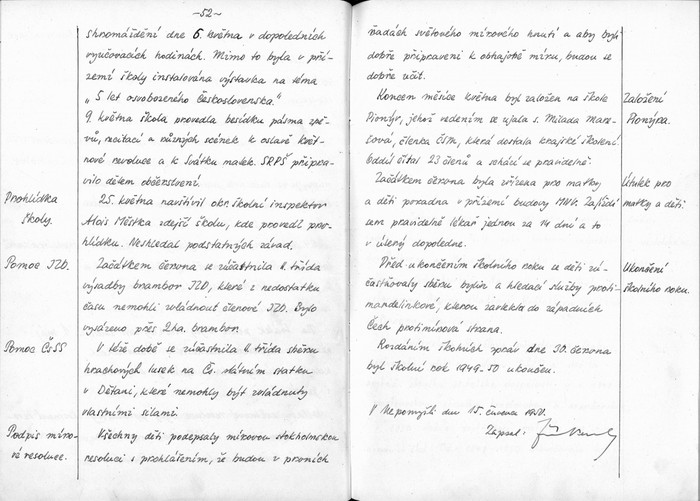 -52-
shromáždění dne 6. května v dopoledních
vyučovacích hodinách. Mimo to byla v pří-
zemí školy instalována výstavka na téma
„5 let osvobozeného Československa."
9. května škola provedla besídku pásma zpě-
vů, recitací a různých scének k oslavě květ-
nové revoluce a k Svátku matek. SRPŠ připra-
vilo dětem občerstvení.
Prohlídka
školy.
25. května navštívil okr. školní inspektor
Alois Městka zdejší školu, kde provedl pro-
hlídku. Neshledal podstatných závad.
Pomoc JZD.
Začátkem června se zúčastnila II. třída
výsadby brambor JZD, které z nedostatku
času nemohli zvládnout členové JZD. Bylo
vysázeno přes 2ha. brambor.
Pomoc ČsSS
V téže době se zúčastnila II. třída sběru
hrachových lusek na Čs. státním statku
v Dětani, které nemohly být zvládnuty
vlastními silami.
Podpis míro-
vé resoluce.
Všechny děti podepsaly mírovou stokholmskou
resoluci s prohlášením, že budou v prvních
řadách světového mírového hnutí a aby byli
dobře připraveni k obhajobě míru, budou se
dobře učit.
Založení
Pionýra.
Koncem měsíce května byl založen na škole
Pionýr, jehož vedením se ujala s. Milada
členka ČSM, která dostala krajské školení.
Oddíl čítal 23 členů a schází se pravidelně.
Útulek pro
matky a děti
Začátkem června byla zřízena pro matky
a děti poradna v přízemí budovy MNV. Zajíždí
sem pravidelně lékař jednou za 14 dní a to
v úterý dopoledne.
Ukončení
školního roku.
Před ukončením školního roku se děti zú-
častňovaly sběru bylin a hledací služby proti
mandelinkové, kterou zavlekla do západních
Čech protimírová strana.
Rozdáním školních zpráv dne 30. června
byl školní rok 1949-50 ukončen.
V Nepomyšli dne 15. června 1950.
Zapsal: